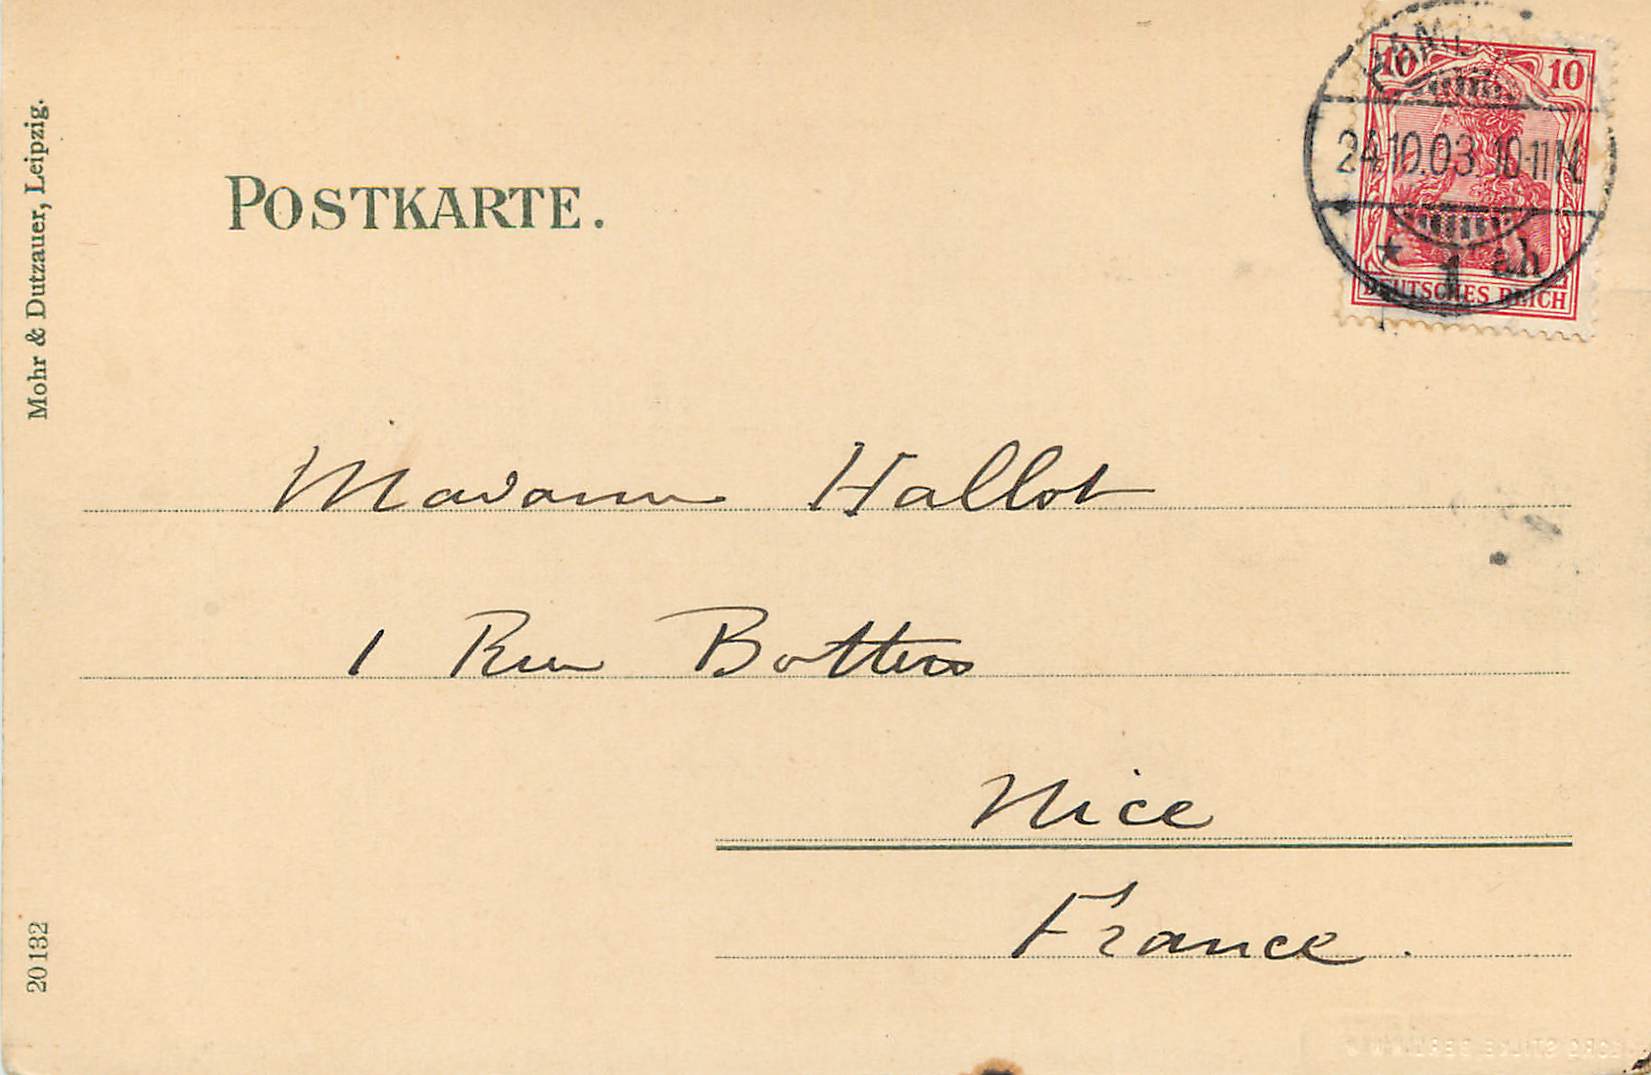 10 10
24.10.03. 10-11 N.
* 1 ah
DEUTSCHES REICH
Mohr & Dutzauer, Leipzig.
POSTKARTE.
Madame Hallot
1 Rue
Nice
France.
20132